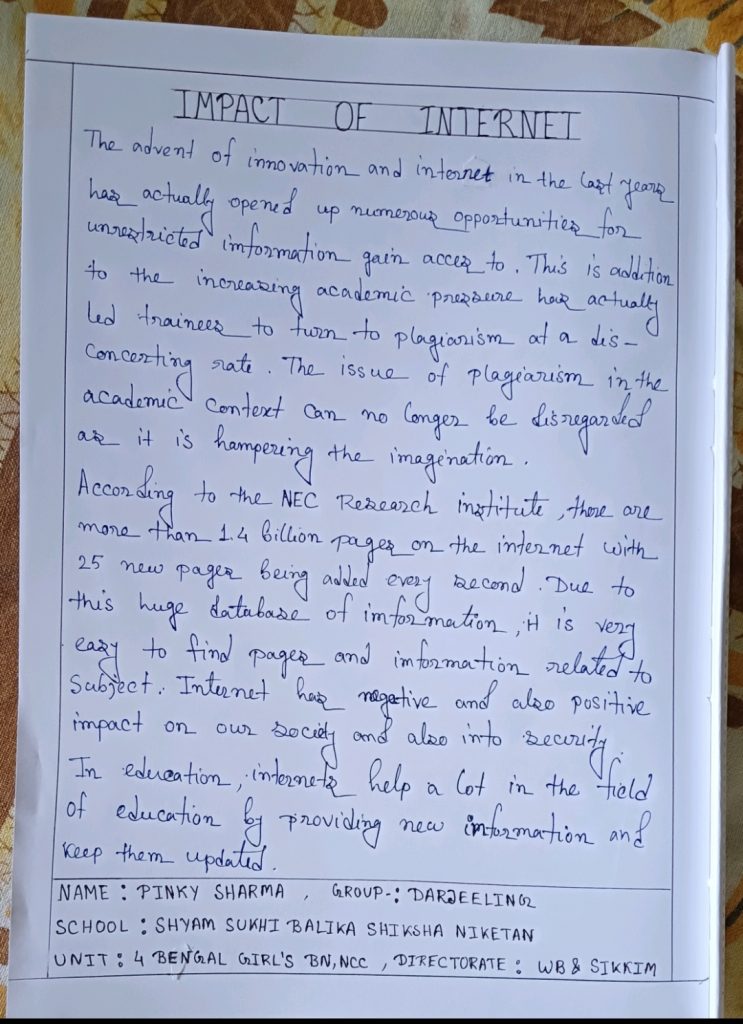 IMPACT OF INTERNET
The advent of innovation and internet in the last years
has actually opened up numerous opportunities for
unrestricted information gain acces to. This is addition
to the increasing academic pressure has actually
led trainees to turn to plagiarism at a dis-
concerting rate. The issue of plagiarism in the
academic context can no longer be disregarded
as it is hampering the imagination.
According to the NEC Research institute, there are
more than 1.4 billion pages on the internet with
25 new pages being added every second. Due to
this huge database of information, it is very
easy to find pages and information related to
Subject. Internet has negative and also positive
impact on our society and also into security.
In education, internets help a lot in the field
of education by providing new information and
keep them updated.
NAME : PINKY SHARMA , GROUP-: DARJEELING
SCHOOL : SHYAM SUKHI BALIKA SHIKSHA NIKETAN
UNIT : 4 BENGAL GIRL'S BN, NCC , DIRECTORATE : WB & SIKKIM